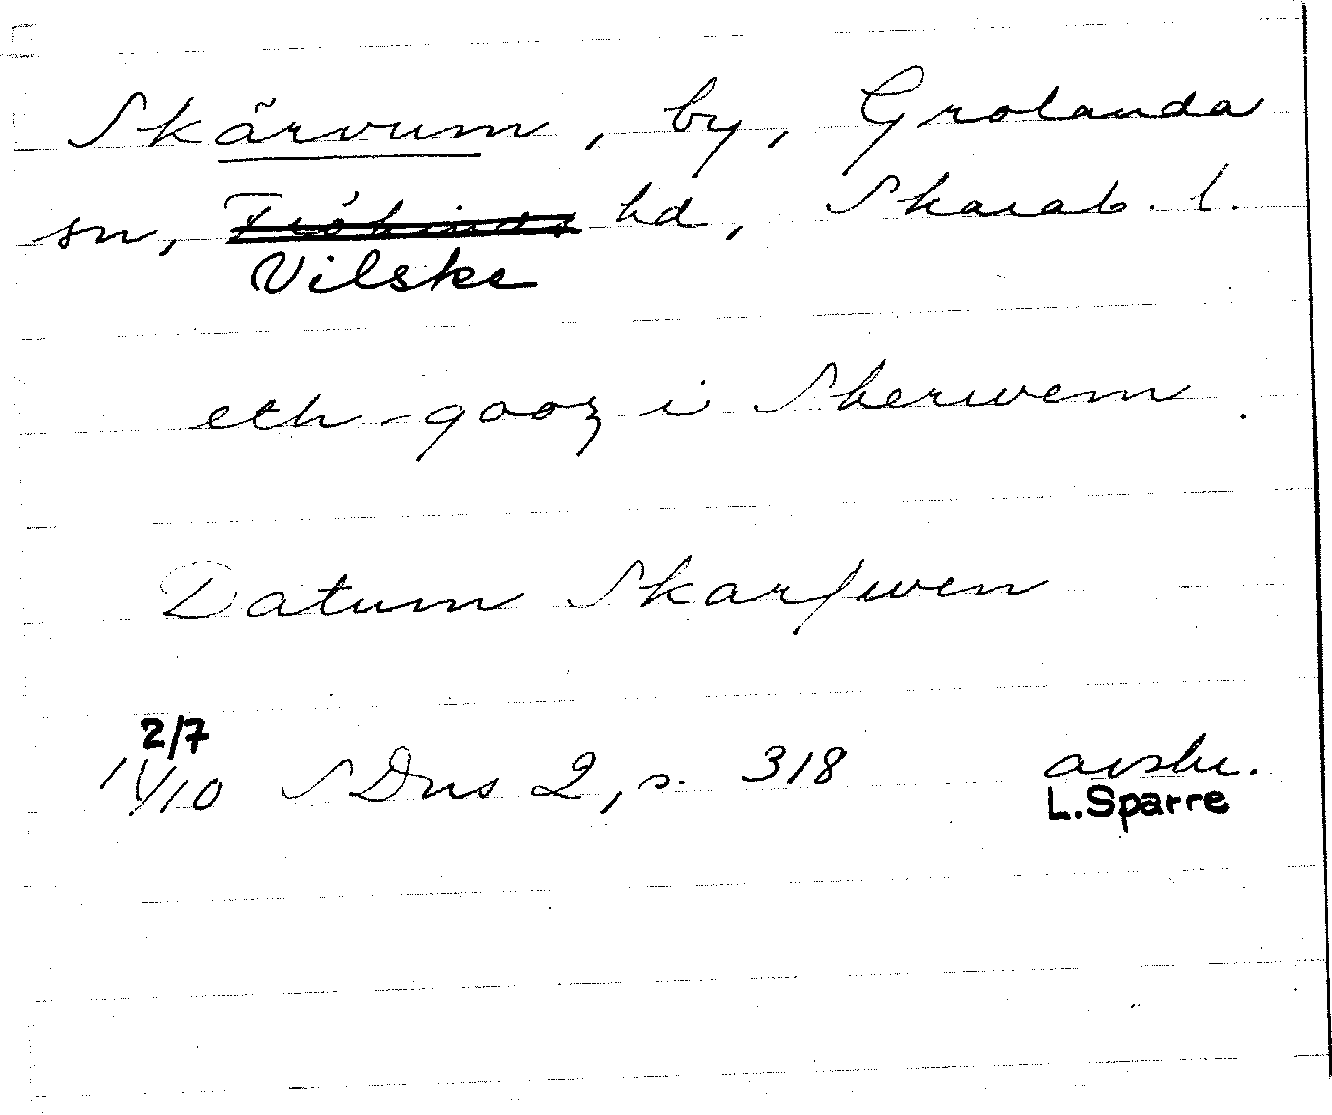 Skärvum, by, Grolanda
sn, Frökinds hd, Skarab. l.
Vilske
eth gooz i Skerwem.
Datum Skarffwen
2/7
14/10 SDns 2, s. 318 avskr.
L. Sparre